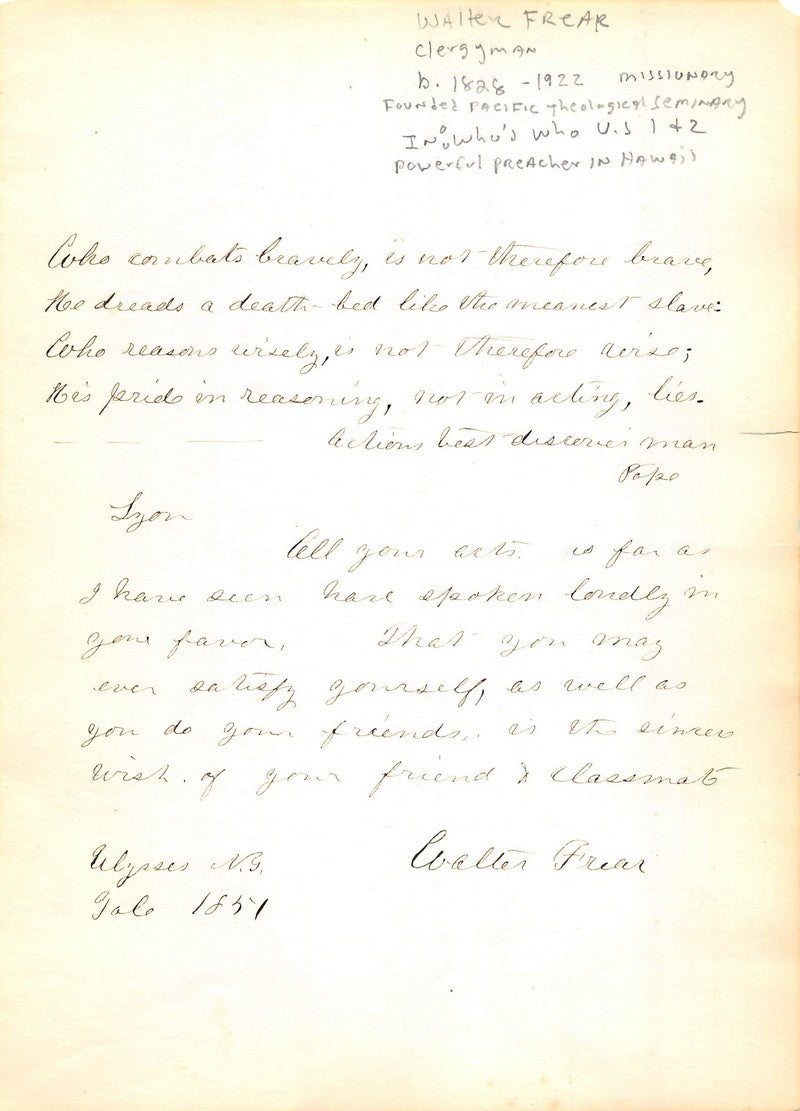 Walter Frear
Clergyman
b. 1828 - 1922 missionary
Founded Pacific Theological Seminary
In: Who's Who U.S 1 & 2
powerful preacher in Hawaii
Who combats bravely, is not therefore brave,
He dreads a death-bed like the meanest slave:
Who reasons wisely, is not therefore wise;
His pride in reasoning, not in acting, lies.
Actions best discover man
Pope
Lyon
All your acts as far as
I have seen have spoken loudly in
your favor. That you may
ever satisfy yourself, as well as
you do your friends, is the sincere
wish of your friend & classmate
Walter Frear
Ulysses N.Y.
Yale 1851